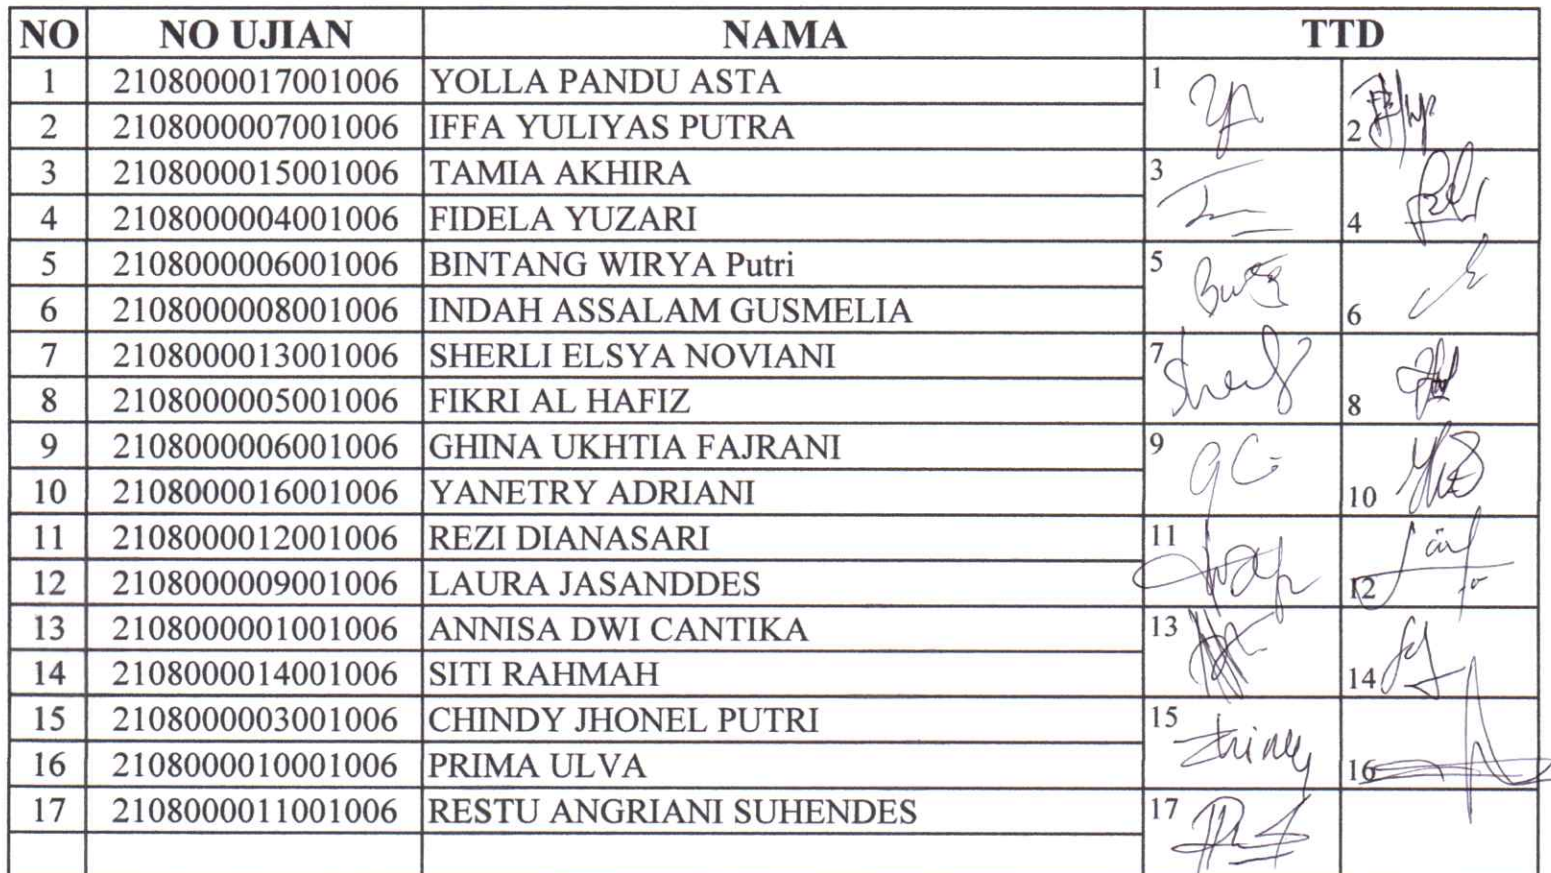 NO NO UJIAN NAMA TTD
1 2108000017001006 YOLLA PANDU ASTA 1
2 2108000007001006 IFFA YULIYAS PUTRA 2
3 2108000015001006 TAMIA AKHIRA 3
4 2108000004001006 FIDELA YUZARI 4
5 2108000006001006 BINTANG WIRYA Putri 5
6 2108000008001006 INDAH ASSALAM GUSMELIA 6
7 2108000013001006 SHERLI ELSYA NOVIANI 7
8 2108000005001006 FIKRI AL HAFIZ 8
9 2108000006001006 GHINA UKHTIA FAJRANI 9
10 2108000016001006 YANETRY ADRIANI 10
11 2108000012001006 REZI DIANASARI 11
12 2108000009001006 LAURA JASANDDES 12
13 2108000001001006 ANNISA DWI CANTIKA 13
14 2108000014001006 SITI RAHMAH 14
15 2108000003001006 CHINDY JHONEL PUTRI 15
16 2108000010001006 PRIMA ULVA 16
17 2108000011001006 RESTU ANGRIANI SUHENDES 17